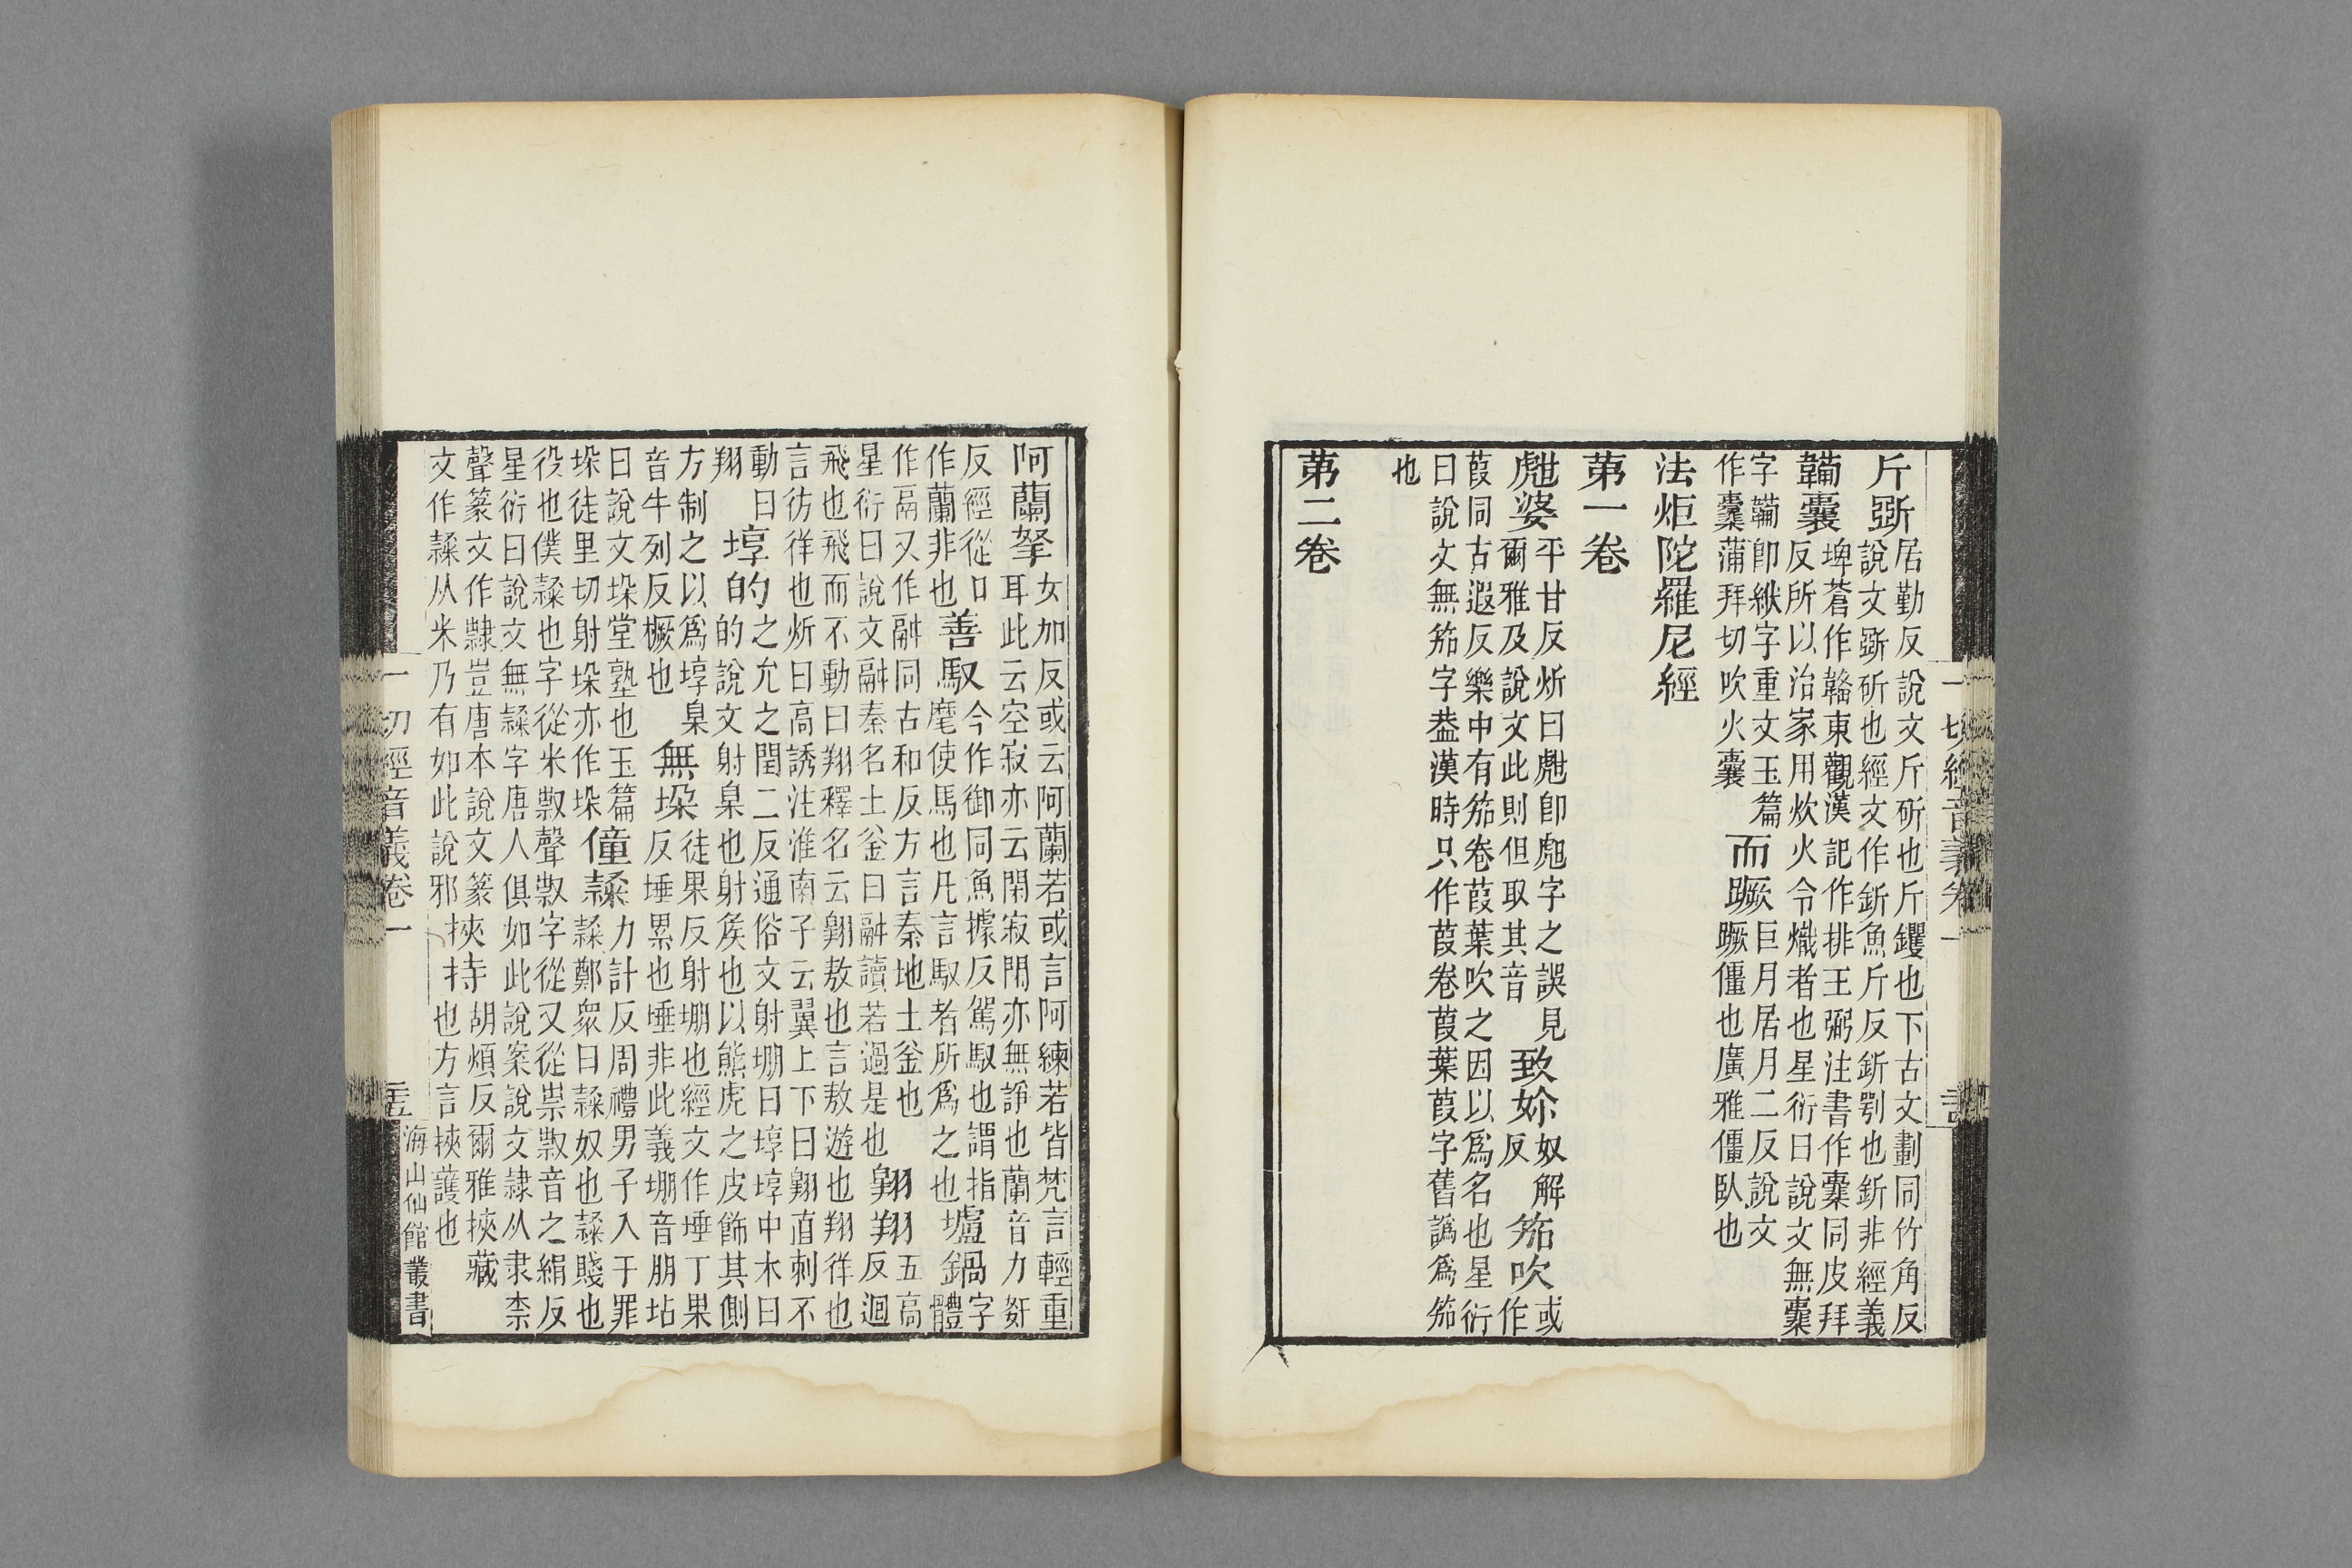 斤斲居勤反說文斤斫也斤钁也下古文劃同竹角反
說文斲斫也經文作釿魚斤反釿剫也釿非經義
鞴囊埤蒼作韛東觀漢記作排王弼注書作橐同皮拜
反所以治家用炊火令熾者也星衍曰說文無橐
字鞴卽絥字重文玉篇
作橐蒲拜切吹火囊
而蹶巨月居月二反說文
蹶僵也廣雅僵臥也
法炬陀羅尼經
第一卷
虺婆平甘反炘曰虺卽虺字之誤見
爾雅及說文此則但取其音
致妳奴解
反
笳吹或
作
葭同古遐反樂中有笳卷葭葉吹之因以爲名也星衍
曰說文無笳字葢漢時只作葭卷葭葉葭字舊譌爲笳
也
第二卷
一切經音義卷一
阿蘭拏女加反或云阿蘭若或言阿練若皆梵言輕重
耳此云空寂亦云閑寂閑亦無諍也蘭音力姧
反經從口
作蘭非也
善馭今作御同魚據反駕馭也謂指
麾使馬也凡言馭者所爲之也
壚鍋字
體
作鬲又作䰙同古和反方言秦地土釡也
星衍曰說文䰙秦名土釡曰䰙讀若過是也
翱翔五高
反迴
飛也飛而不動曰翔釋名云翱敖也言敖遊也翔徉也
言彷徉也炘曰高誘注淮南子云翼上下曰翱直刺不
動曰
翔
埻的之允之閏二反通俗文射堋曰埻埻中木曰
的說文射臬也射矦也以熊虎之皮飾其側
方制之以爲埻臬
音牛列反橛也
無垛徒果反射堋也經文作埵丁果
反埵累也埵非此義堋音朋坫
曰說文垛堂塾也玉篇
垛徒里切射垛亦作垛
僮隸力計反周禮男子入于罪
隸鄭眾曰隸奴也隸賤也
役也僕隸也字從米㪏聲㪏字從又從祟㪏音之絹反
星衍曰說文無隸字唐人俱如此說案說文隷从隶柰
聲篆文作隸豈唐本說文篆
文作隸从米乃有如此說邪
挾持胡頰反爾雅挾藏
也方言挾護也
一切經音義卷一
海山仙館叢書